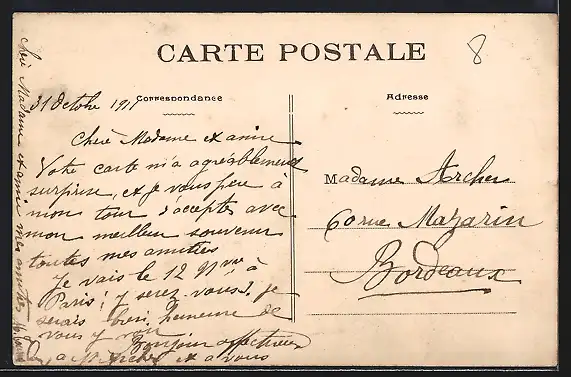 CARTE POSTALE
8
Correspondance
Adresse
31 Octobre 191
Chère Madame et amie
Votre carte m'a agréablement
surprise, et je vous prie à
mon tour d'accepter avec
mon meilleur souvenir
toutes mes amitiés
Je vais le 12 Nvre à
Paris! y serez vous? je
serais bien heureuse de
vous y voir
Bonjour affectueux
a Mr Archer et a vous
Madame Archer
60 rue Mazarin
Bordeaux
Chère Madame et amie mes amitiés